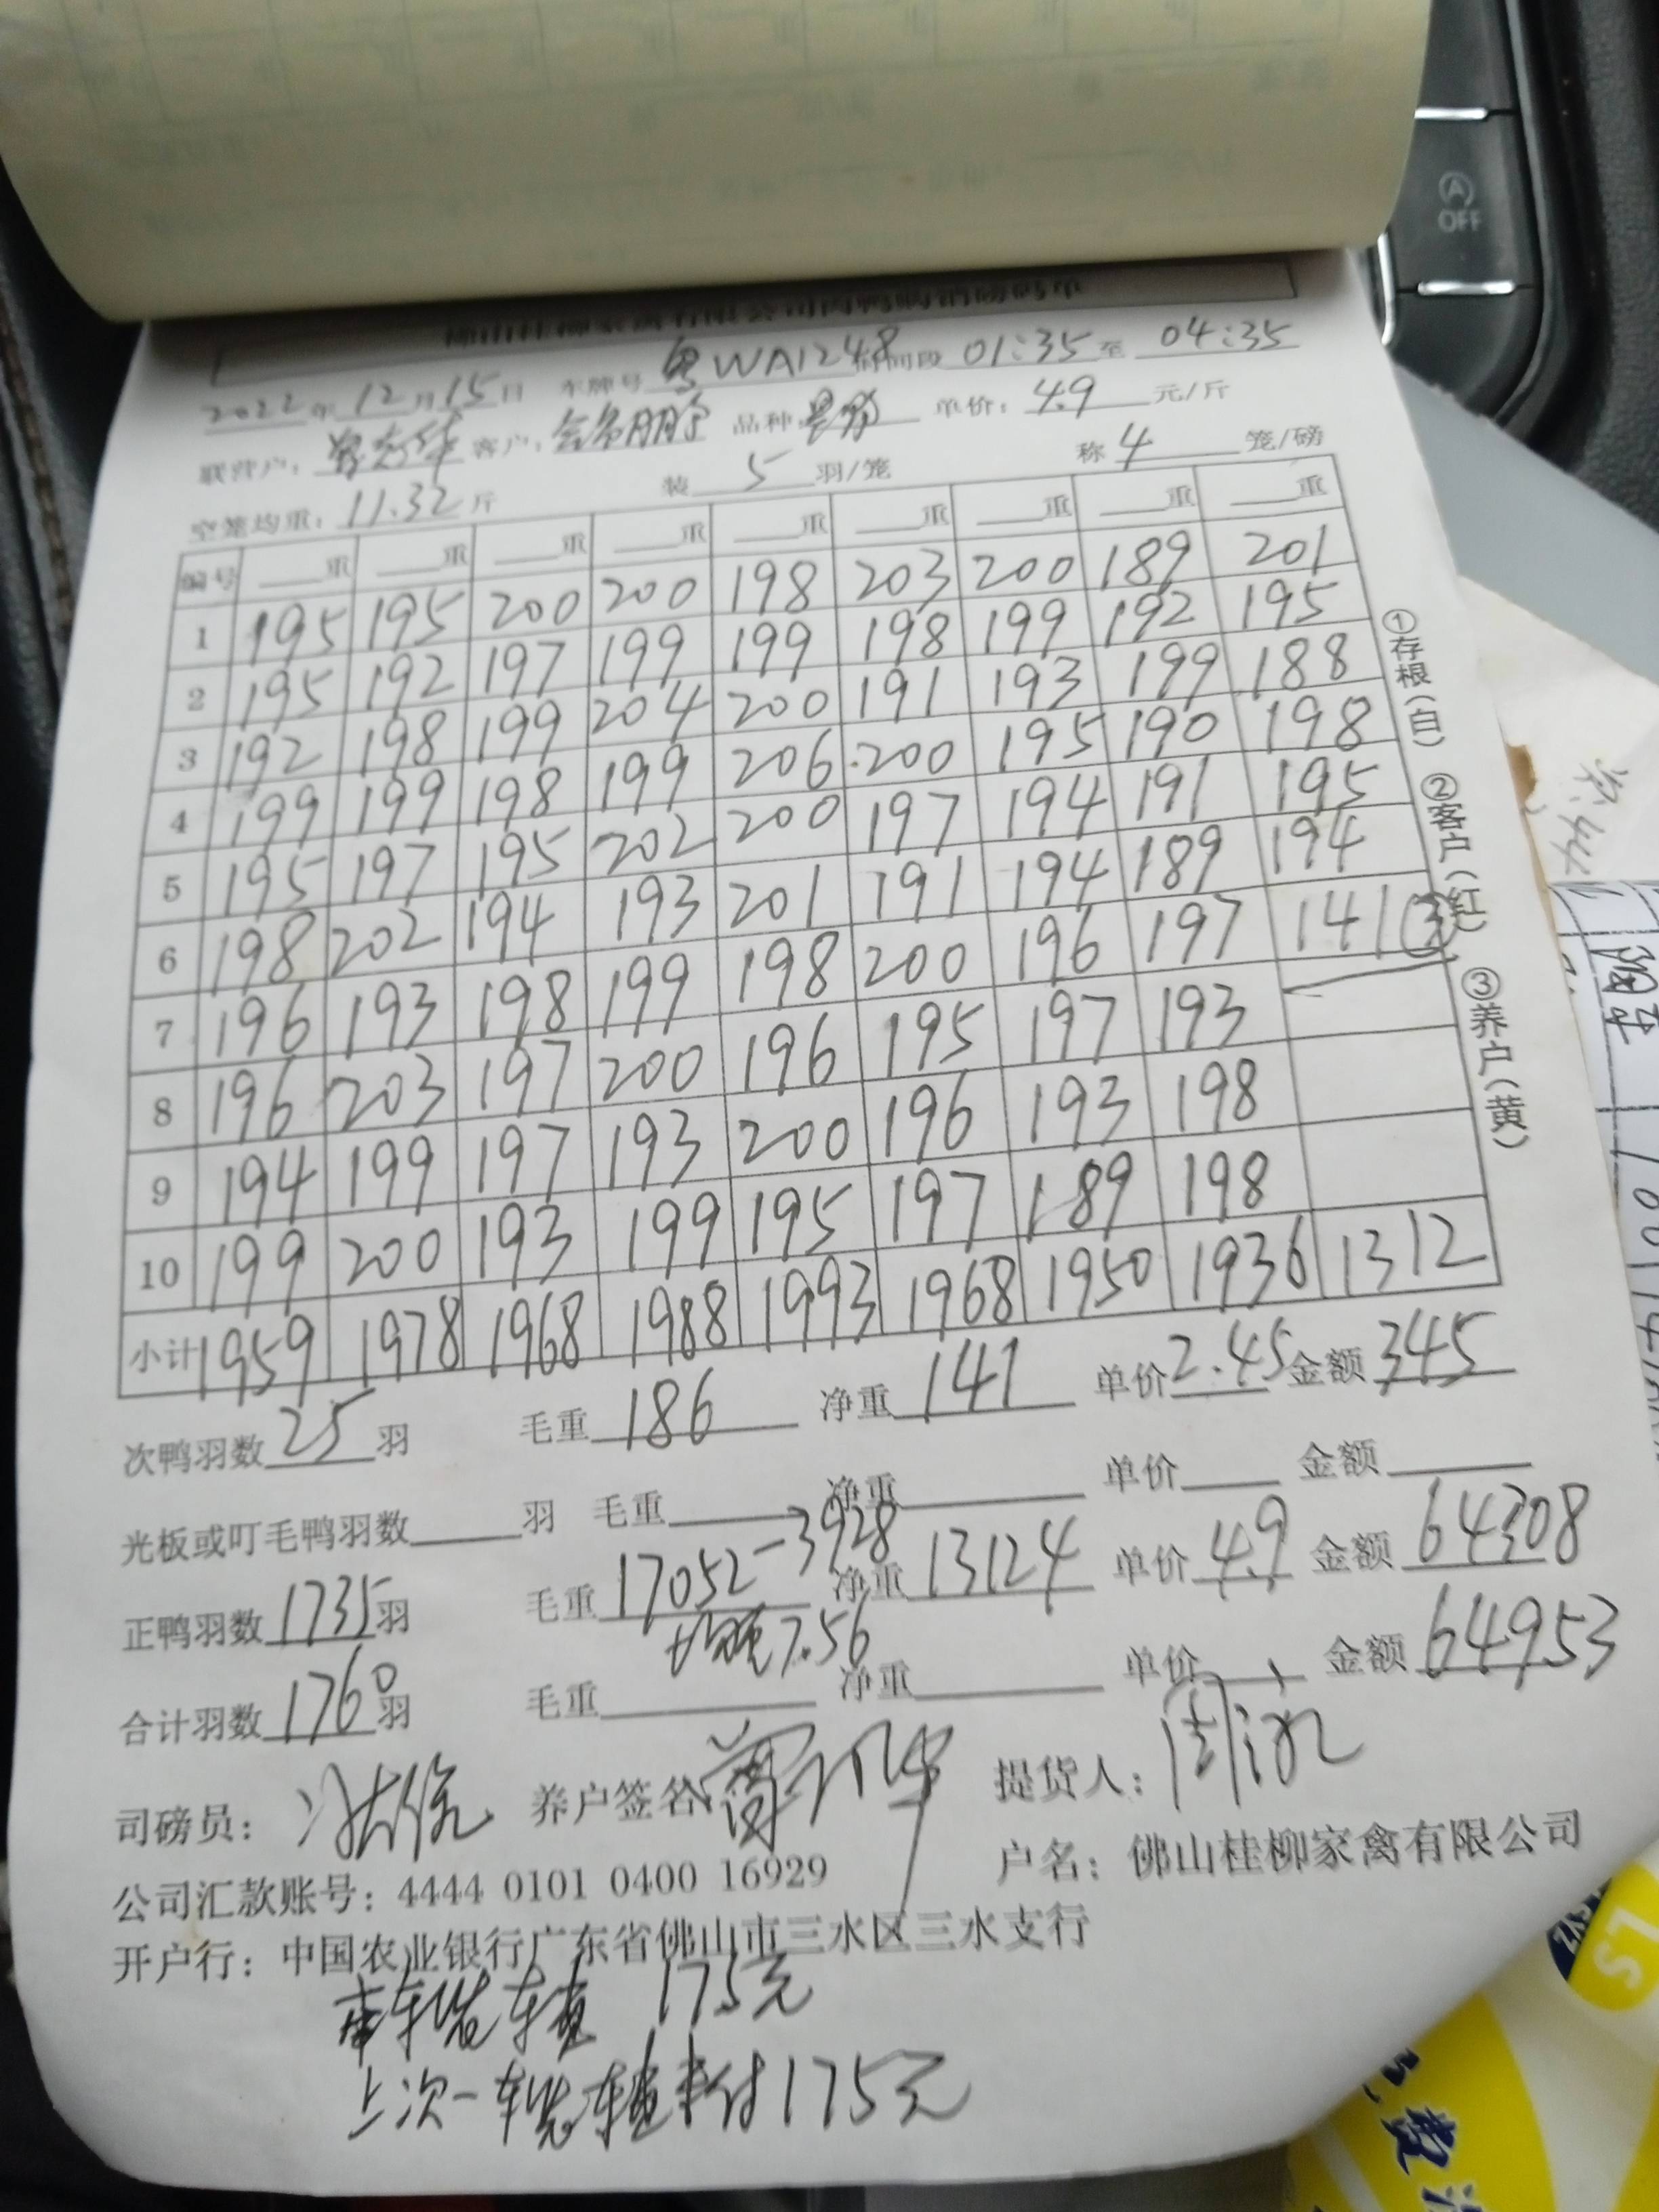 2022年12月15日 车牌号 粤WA1248 时间段 01:35 至 04:35
联营户: 客户: 品种: 单价: 4.9 元/斤
空笼均重: 11.32 斤 装 5 羽/笼 称 4 笼/磅
编号 重 重 重 重 重 重 重 重 重
1 195 195 200 200 198 203 200 189 201
2 195 192 197 199 199 198 199 192 195
3 192 198 199 204 200 191 193 199 188
4 199 199 198 199 206 200 195 190 198
5 195 197 195 202 200 197 194 191 195
6 198 202 194 193 201 191 194 189 194
7 196 193 198 199 198 200 196 197 141③
8 196 203 197 200 196 195 197 193
9 194 199 197 193 200 196 193 198
10 199 200 193 199 195 197 189 198
小计 1959 1978 1968 1988 1993 1968 1950 1936 1312
①存根(白) ②客户(红) ③养户(黄)
次鸭羽数 25 羽 毛重 186 净重 141 单价 2.45 金额 345
光板或叮毛鸭羽数 羽 毛重 净重 单价 金额
正鸭羽数 1735 羽 毛重 17052-3928 净重 13124 单价 4.9 金额 64308
均重7.56
合计羽数 1760 羽 毛重 净重 单价 金额 64953
司磅员: 养户签名: 提货人:
公司汇款账号: 4444 0101 0400 16929 户名: 佛山桂柳家禽有限公司
开户行: 中国农业银行广东省佛山市三水区三水支行
175元
上次一车装车费未付175元
A
OFF
LS